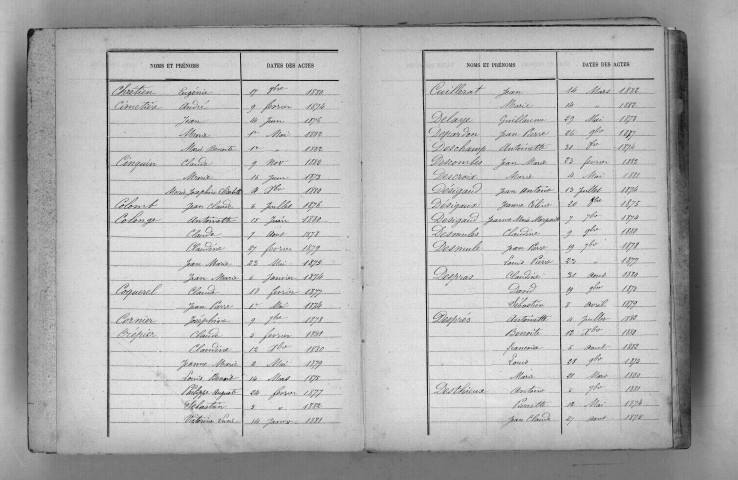 NOMS ET PRÉNOMS DATES DES ACTES
Chrétien Eugénie 17 xbre 1880
Cimetière André 9 février 1874
Jean 14 Juin 1876
Marie 1er Mai 1882
Marie 1er " 1882
Cinquin Claude 9 Nov 1880
Marie 16 Juin 1873
Marie Josephine 1880
Colomb Jean Claude 6 Juillet 1876
Colonge Antoinette 15 Juin 1880
Claude 7 aout 1878
Claudine 27 février 1879
Jean Marie 22 Mai 1875
Jean Marie 6 Janvier 1874
Coquerel Claude 18 février 1877
Jean Pierre 1er Mai 1874
Cornier Joséphine 9 1878
Crépier Claude 2 février 1881
Claudine 12 xbre 1880
Jeanne Marie 2 Mai 1879
Louis 14 Mars 1875
Philippe Auguste 24 février 1877
Sébastien 2 " 1882
Victorine 14 Janvier 1881
NOMS ET PRÉNOMS DATES DES ACTES
Cuillerat Jean 14 Mars 1882
Marie 14 " 1882
Delaye Guillaume 29 Mai 1873
Depardon Jean Pierre 26 9bre
Deschamp Antoinette 1874
Descombes Jean Marie 23 février 1882
Descroix Marie 4 Mai 1881
Désigaud Jean Antoine 13 Juillet 1874
Désigaux Jeanne Céline 20 1875
Désigaud Jeanne Marie 7 7bre 1874
Desmules Claudine 9 9bre 1880
Desmule Jean Pierre 19 7bre 1878
Louis Pierre 22 " 1877
Despras Claudine 31 aout 1880
David 19 1873
Sébastien 8 avril 1879
Desprès Antoinette 4 Juillet 1880
Benoite 12 xbre 1880
Francoise 6 aout 1882
Louis 28 9bre 1873
Marie 21 Mars 1880
Desthieux Antoine 6 1881
Pierrette 12 Mai 1874
Jean Claude 27 aout 1876